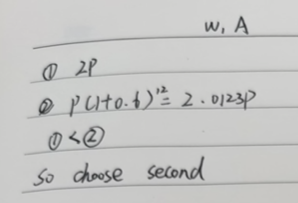 W, A
① 2P
② P(1+0.6)¹² = 2.0123P
① < ②
so choose second